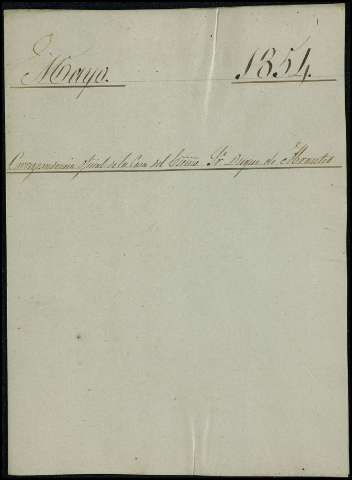 Mayo. 1854.
Correspondencia oficial de la Casa del Excmo. Sr. Duque de Abrantes